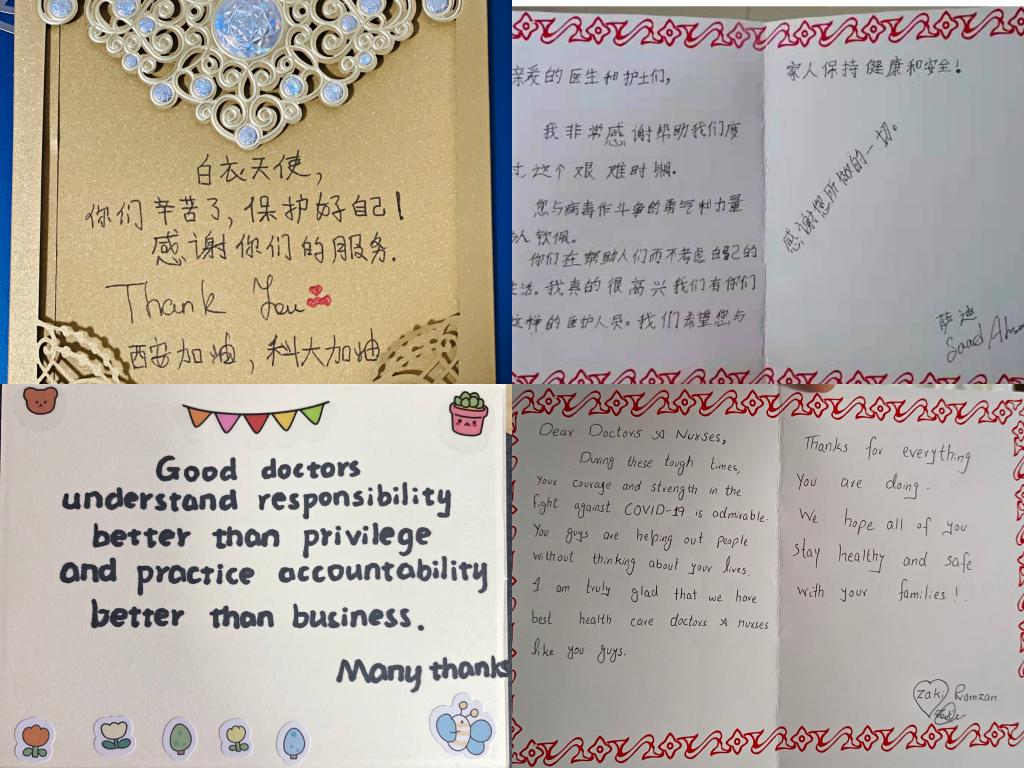 白衣天使，
你们辛苦了，保护好自己！
感谢你们的服务.
Thank You
西安加油，科大加油
亲爱的医生和护士们，
我非常感谢帮助我们度
过这个艰难时期.
您与病毒作斗争的勇气和力量
令人钦佩。
你们在帮助人们而不考虑自己的
生活。我真的很高兴我们有你们
这样的医护人员。我们希望您与
家人保持健康和安全！
感谢您所做的一切。
萨迪
Saad
Good doctors
understand responsibility
better than privilege
and practice accountability
better than business.
Many thanks
Dear Doctors & Nurses,
During these tough times,
Your courage and strength in the
fight against COVID-19 is admirable.
You guys are helping out people
without thinking about your lives.
I am truly glad that we have
best health care doctors & nurses
like you guys.
Thanks for everything
You are doing.
We hope all of you
stay healthy and safe
with your families!.
Zaki Ramzan